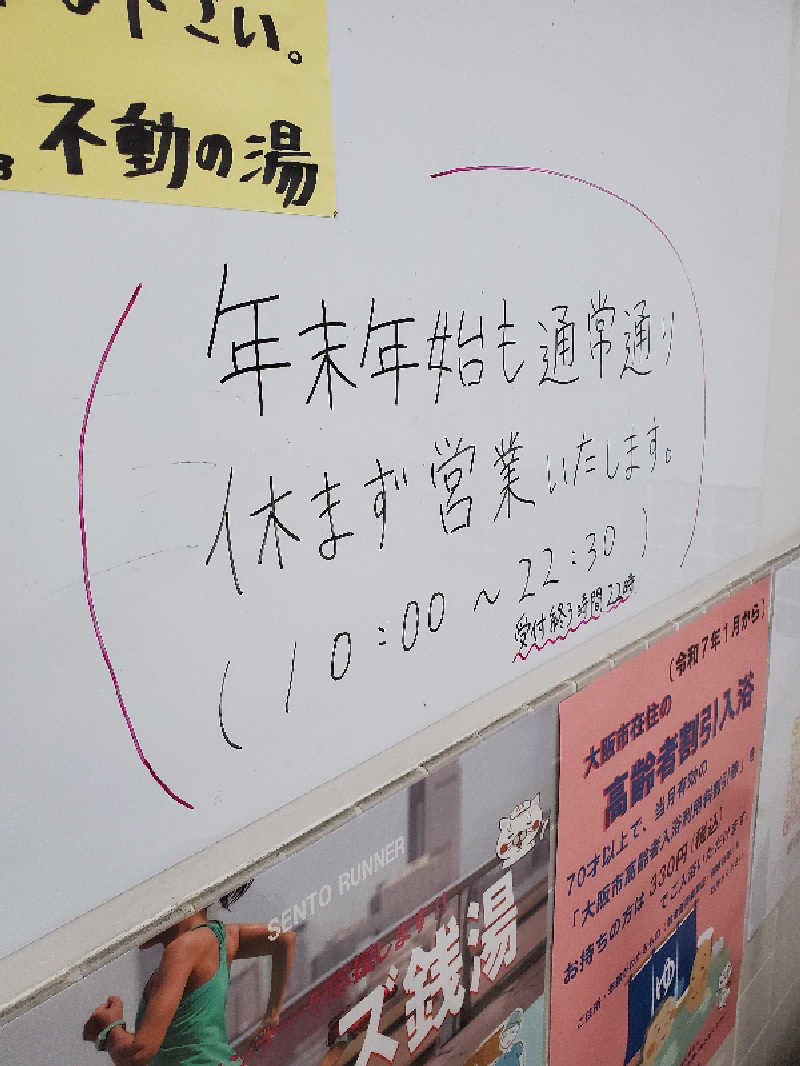 下さい。
不動の湯
年末年始も通常通り
休まず営業いたします。
(10:00~22:30)
受付終了時間22時
(令和7年1月から)
大阪市在住の
高齢者割引入浴
70才以上で、当月有効の
「大阪市高齢者入浴利用料割引証」を
お持ちの方は 330円(税込)
でご入浴いただけます。
SENTO RUNNER
ズ銭湯
ゆ